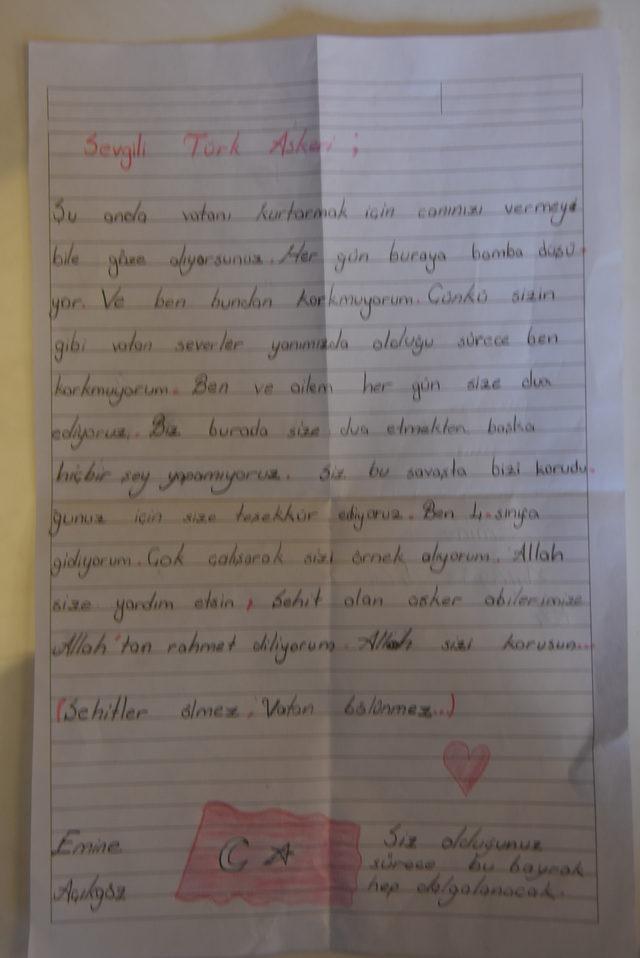 Sevgili Türk Askeri ;
Şu anda vatanı kurtarmak için canınızı vermeyi
bile göze alıyorsunuz. Her gün buraya bomba düşü-
yor. Ve ben bundan korkmuyorum. Çünkü sizin
gibi vatan severler yanımızda olduğu sürece ben
korkmuyorum. Ben ve ailem her gün size dua
ediyoruz. Biz burada size dua etmekten başka
hiçbir şey yapamıyoruz. Siz bu savaşta bizi korudu-
ğunuz için size teşekkür ediyoruz. Ben 4. sınıfa
gidiyorum. Çok çalışarak sizi örnek alıyorum. Allah
size yardım etsin, Şehit olan asker abilerimize
Allah'tan rahmet diliyorum. Allah sizi korusun...
(Şehitler ölmez, Vatan bölünmez...)
Emine
Açıkgöz
Siz olduğunuz
sürece bu bayrak
hep dalgalanacak.